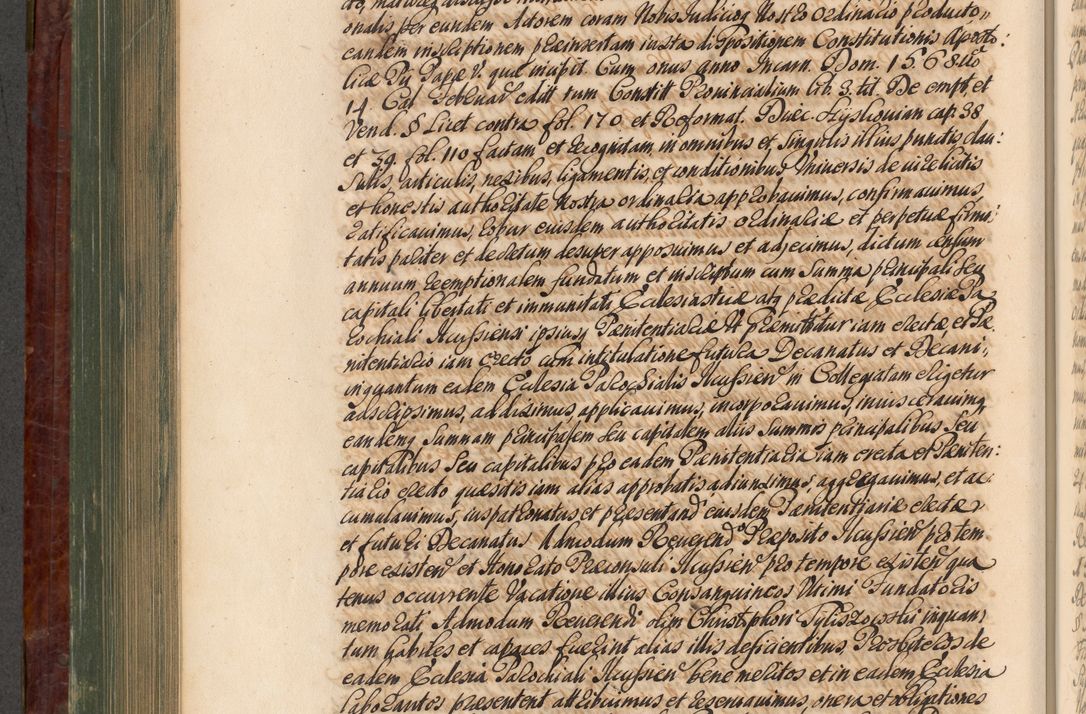 onalis per eundem Actorem coram Nobis Judicioq Nostro Ordinario producto,,
eandem inscriptionem præinsertam iuxta dispositionem Constitutionis Aposto:
licæ Pij Papæ V. quæ incipit. Cum onus anno Incarn. Dom. 1568 uo
14. Cal. Februar. edit tum Constit Provincialium lib. 3. tit. De empt. et
Vend. § Licet contra fol. 170. et Reformat. Duec. Kyslouian cap. 38
et 39. fol. 110 factam et recognitam in omnibus et singulis illius punctis clau:
sulis, articulis, nexibus, ligamentis, et conditionibus Universis de viæ licitis
et honestis authoritate Nostra ordinaria approbavimus, confirmavimus
ratificavimus, robur eiusdem authoritatis ordinariæ et perpetuæ firmi:
tatis pariter et decretum desuper apposuimus et adjecimus, dictum censum
annuum reemptionalem fundatum et inscriptum cum Summa principali seu
capitali libertati et immunitati Ecclesiasticæ atq prædictæ Ecclesiæ Pa:
rochiali Kcyssiensi ipsiusq Pænitentiariæ ut præmittitur iam erectæ, et Pæ
nitentiario iam erecto cum intitulatione futura Decanatus et Decani,,
inquantum eadem Ecclesia Parochialis Kcyssien in Collegiatam erigetur
adscripsimus, addiximus applicavimus, incorporavimus, invisceravimq
eandemq Summam principalem seu capitalem aliis Summis principalibus seu
capitalibus seu capitalibus pro eadem Pænitentiaria iam erecta et Pæniten:
tiario erecto quæsitis iam alias approbatis adiunximus, aggregavimus, et ac
cumulavimus, iuspatronatus et præsentand eiusdem Pænitentiariæ erectæ
et futuri Decanatus Admodum Reverendo Præposito Kcyssien pro tem
pore existen et Honorato Præconsuli Kcyssien pro tempore existen qua
tenus occurrente Vacatione illius Consanguineos Ultimi Fundatoris
memorati Admodum Reverendi olim Christophori Tyliszowski inquan
tum habiles et capaces fuerint alias illis deficientibus Præsbyteros de
eadem Ecclesia Parochiali Kcyssien bene meritos et in eadem Ecclesia
laborantes præsentent attribuimus et reservavimus, onera et obligationes